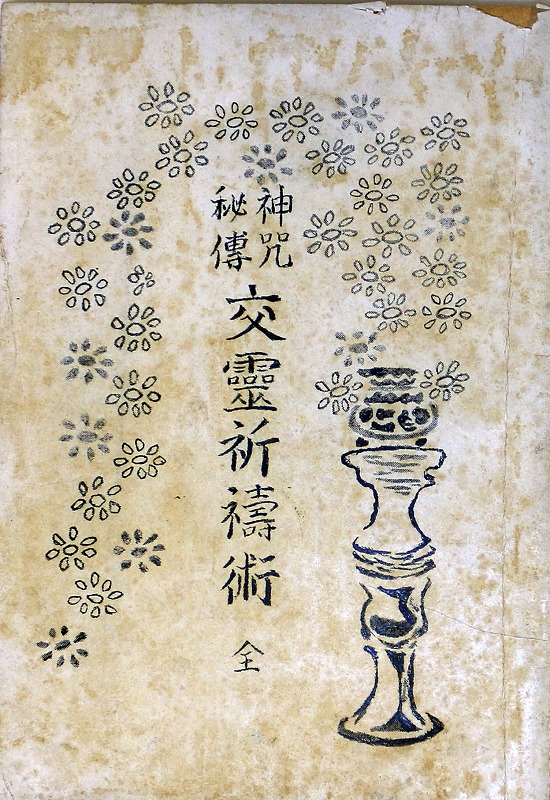 神咒
秘傳
交靈祈禱術
全